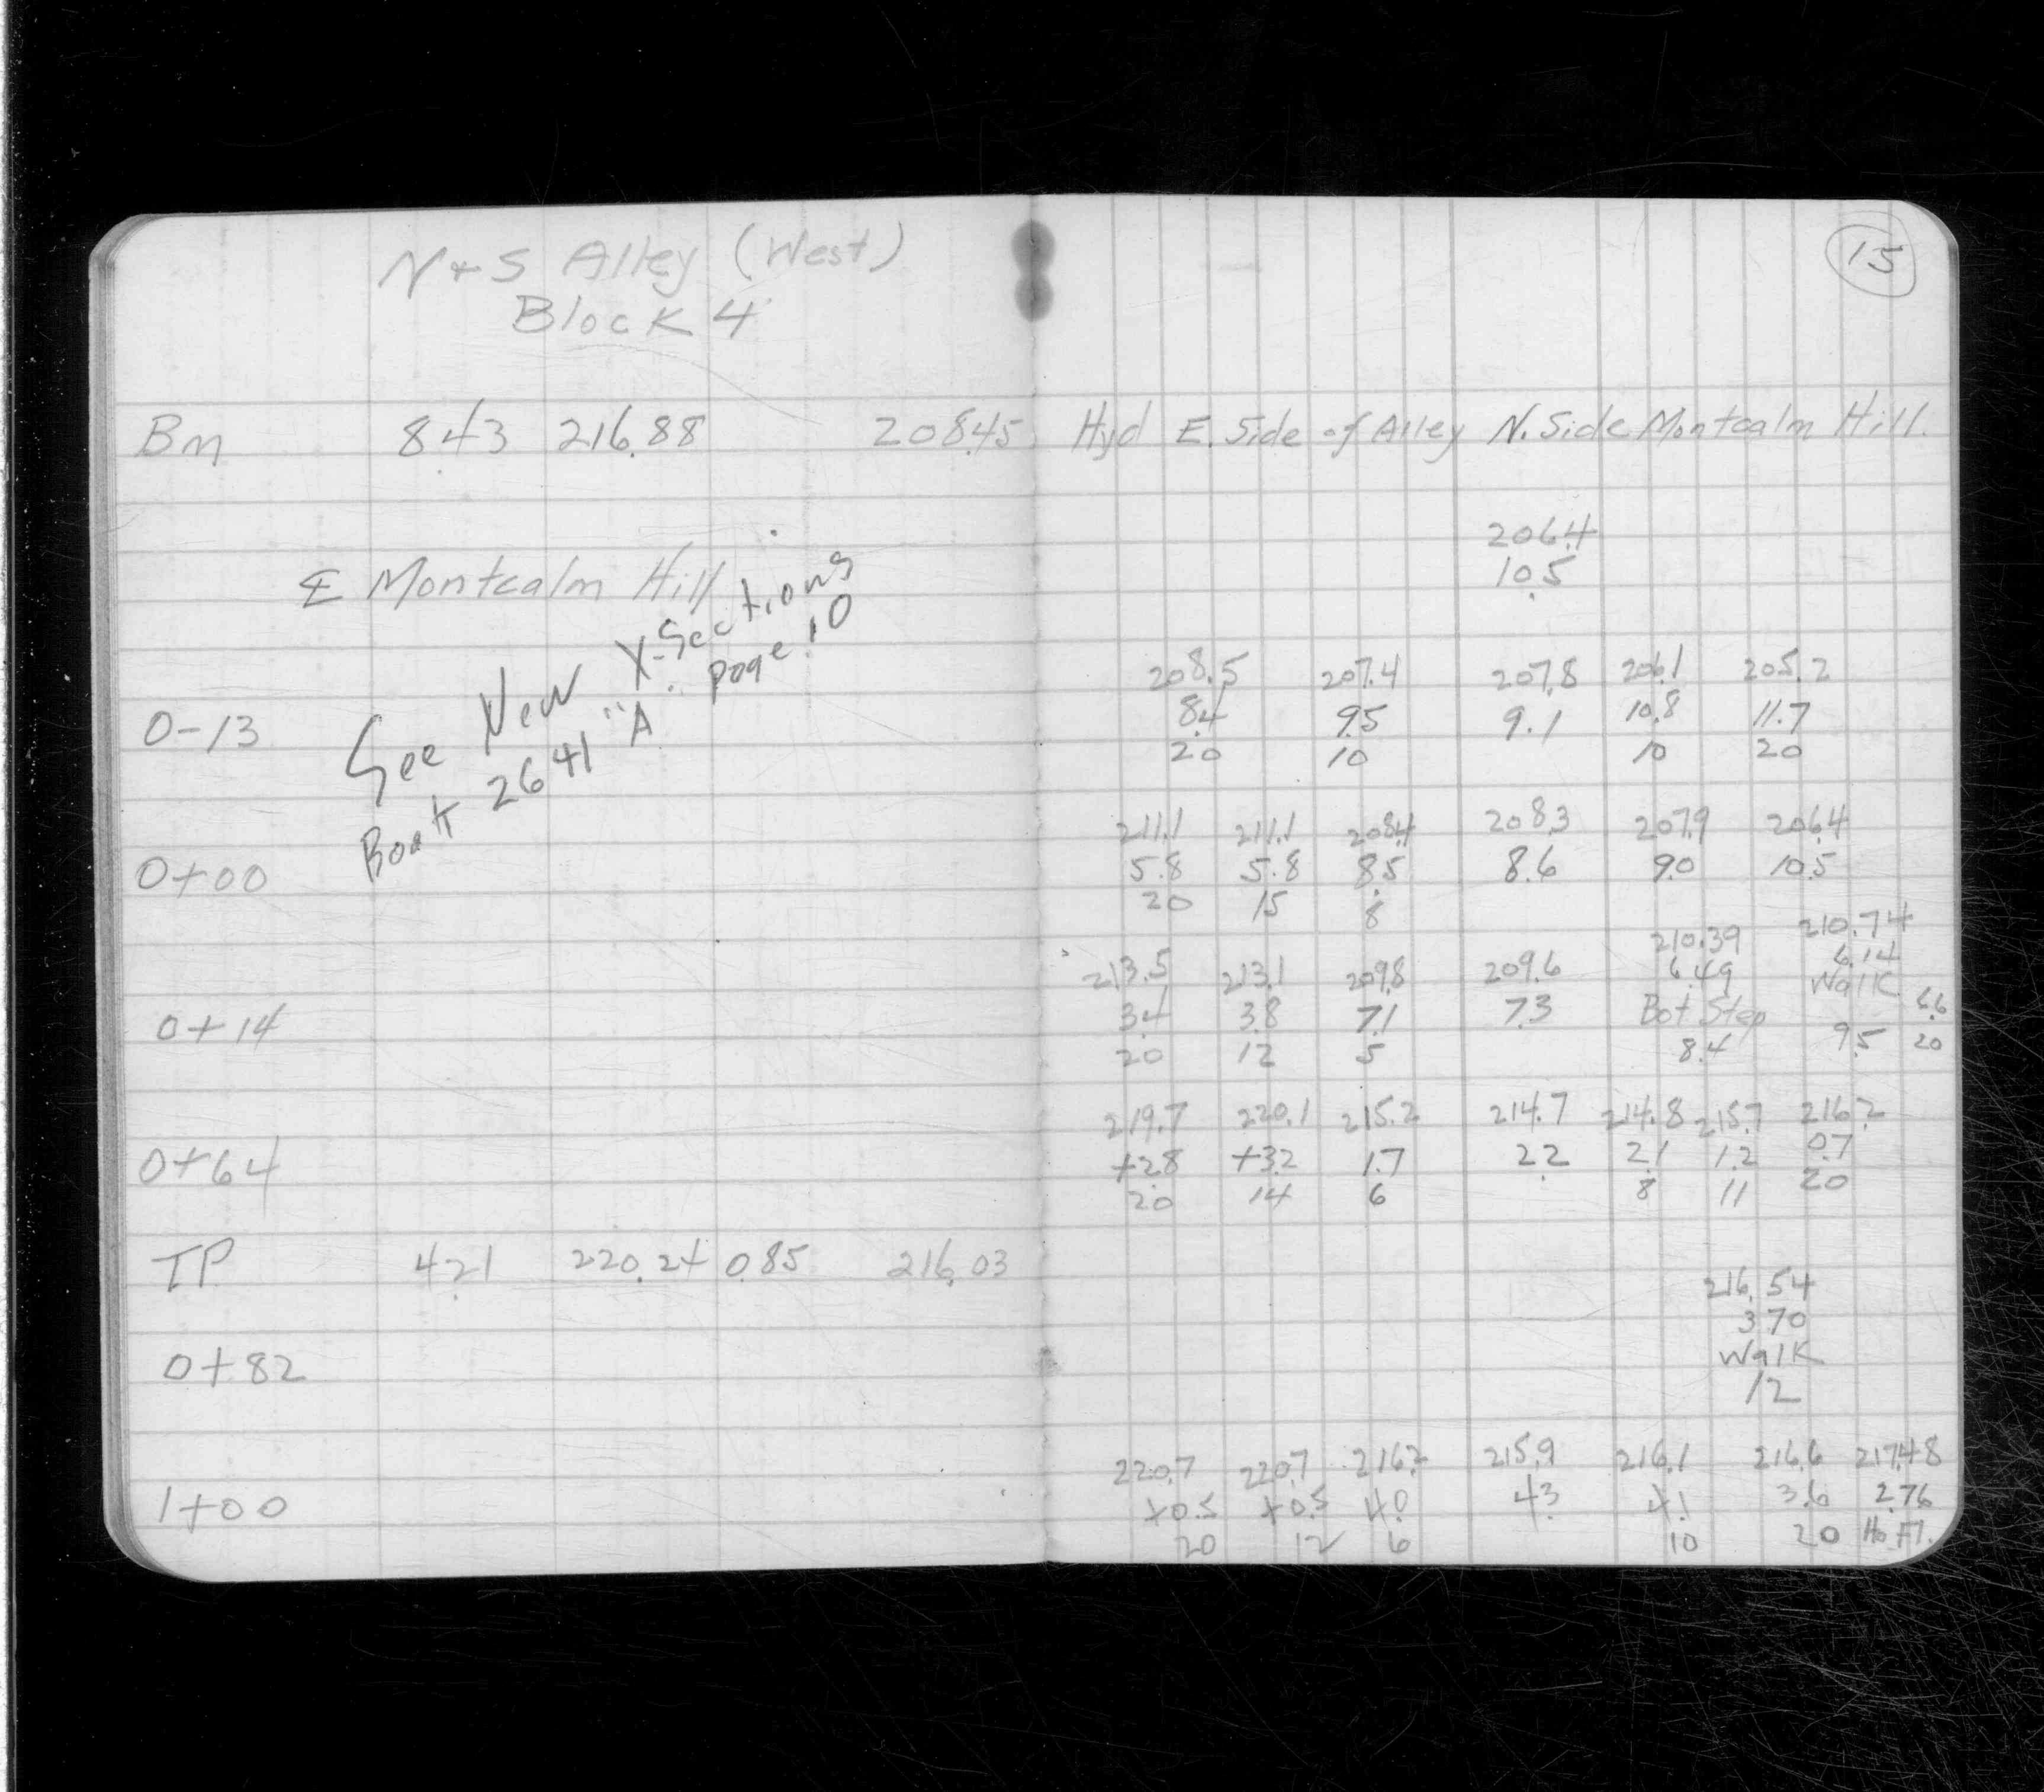 15
N + S Alley (West)
Block 4
Bm 8.43 216.88 208.45 Hyd E. Side of Alley N. Side Montcalm Hill.
206.4
℄ Montcalm Hill 10.5
See New X-Sections
Book 2641 "A" page 10
208.5 207.4 207.8 206.1 205.2
0-13 8.4 9.5 9.1 10.8 11.7
20 10 10 20
211.1 211.1 208.4 208.3 207.9 206.4
0+00 5.8 5.8 8.5 8.6 9.0 10.5
20 15 8
210.39 210.74
213.5 213.1 209.8 209.6 6.49 6.14
Walk
0+14 3.4 3.8 7.1 7.3 Bot Step 6.6
20 12 5 8.4 9.5 20
219.7 220.1 215.2 214.7 214.8 215.7 216.2
0+64 +2.8 +3.2 1.7 2.2 2.1 1.2 0.7
20 14 6 8 11 20
TP 4.21 220.24 0.85 216.03
216.54
3.70
0+82 Walk
12
220.7 220.7 216.2 215.9 216.1 216.6 217.48
1+00 +0.5 +0.5 4.0 4.3 4.1 3.6 2.76
20 12 6 10 20 Ho. Fl.